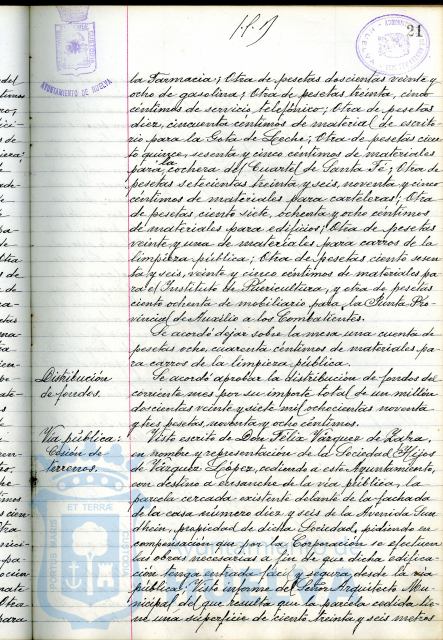 21
AYUNTAMIENTO DE HUELVA
la Farmacia; Otra de pesetas doscientas veinte y
ocho de gasolina; Otra de pesetas treinta, cinco
céntimos de servicio telefónico; Otra de pesetas
diez, cincuenta céntimos de material de escrito-
rio para la Gota de Leche; Otra de pesetas cien
to quince, sesenta y cinco céntimos de materiales
para la cochera del Cuartel de Santa Fé; Otra de
pesetas setecientas treinta y seis, noventa y cinco
céntimos de materiales para carteleras; Otra
de pesetas ciento siete, ochenta y ocho céntimos
de materiales para edificios; Otra de pesetas
veinte y una de materiales para carros de la
limpieza pública; Otra de pesetas ciento sesen
ta y seis, veinte y cinco céntimos de materiales pa
ra el Instituto de Puericultura, y otra de pesetas
ciento ochenta de mobiliario para la Junta Pro-
vincial de Auxilio a los Combatientes.
Se acordó dejar sobre la mesa una cuenta de
pesetas ocho, cuarenta céntimos de materiales pa
ra carros de la limpieza pública.
Distribución
de fondos.
Se acordó aprobar la distribución de fondos del
corriente mes por su importe total de un millón
doscientas veinte y siete mil ochocientas noventa
y tres pesetas, noventa y ocho céntimos.
Vía pública:
Cesión de
terrenos.
Visto escrito de Don Félix Vázquez de Zafra,
en nombre y representación de la Sociedad Hijos
de Vázquez López, cediendo a este Ayuntamiento,
con destino a ensanche de la vía pública, la
parcela cercada existente delante de la fachada
de la casa número diez y seis de la Avenida Sun
dhein, propiedad de dicha Sociedad, pidiendo en
compensación que por la Corporación se efectúen
las obras necesarias a fin de que dicha edifica-
ción tenga entrada fácil y segura desde la vía
pública; Visto informe del Señor Arquitecto Mu-
nicipal del que resulta que la parcela cedida tie-
ne una superficie de ciento treinta y seis metros
PORTUS MARIS ET TERRAE CUSTODIA
Ayuntamiento de